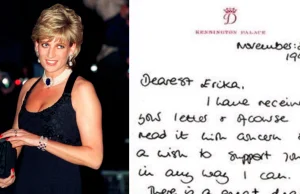 D
KENSINGTON PALACE
November:
19
Dearest Erika,
I have receiv
your letter & ofcourse
read it with concern
a wish to support you
in any way I can.
There is a great de